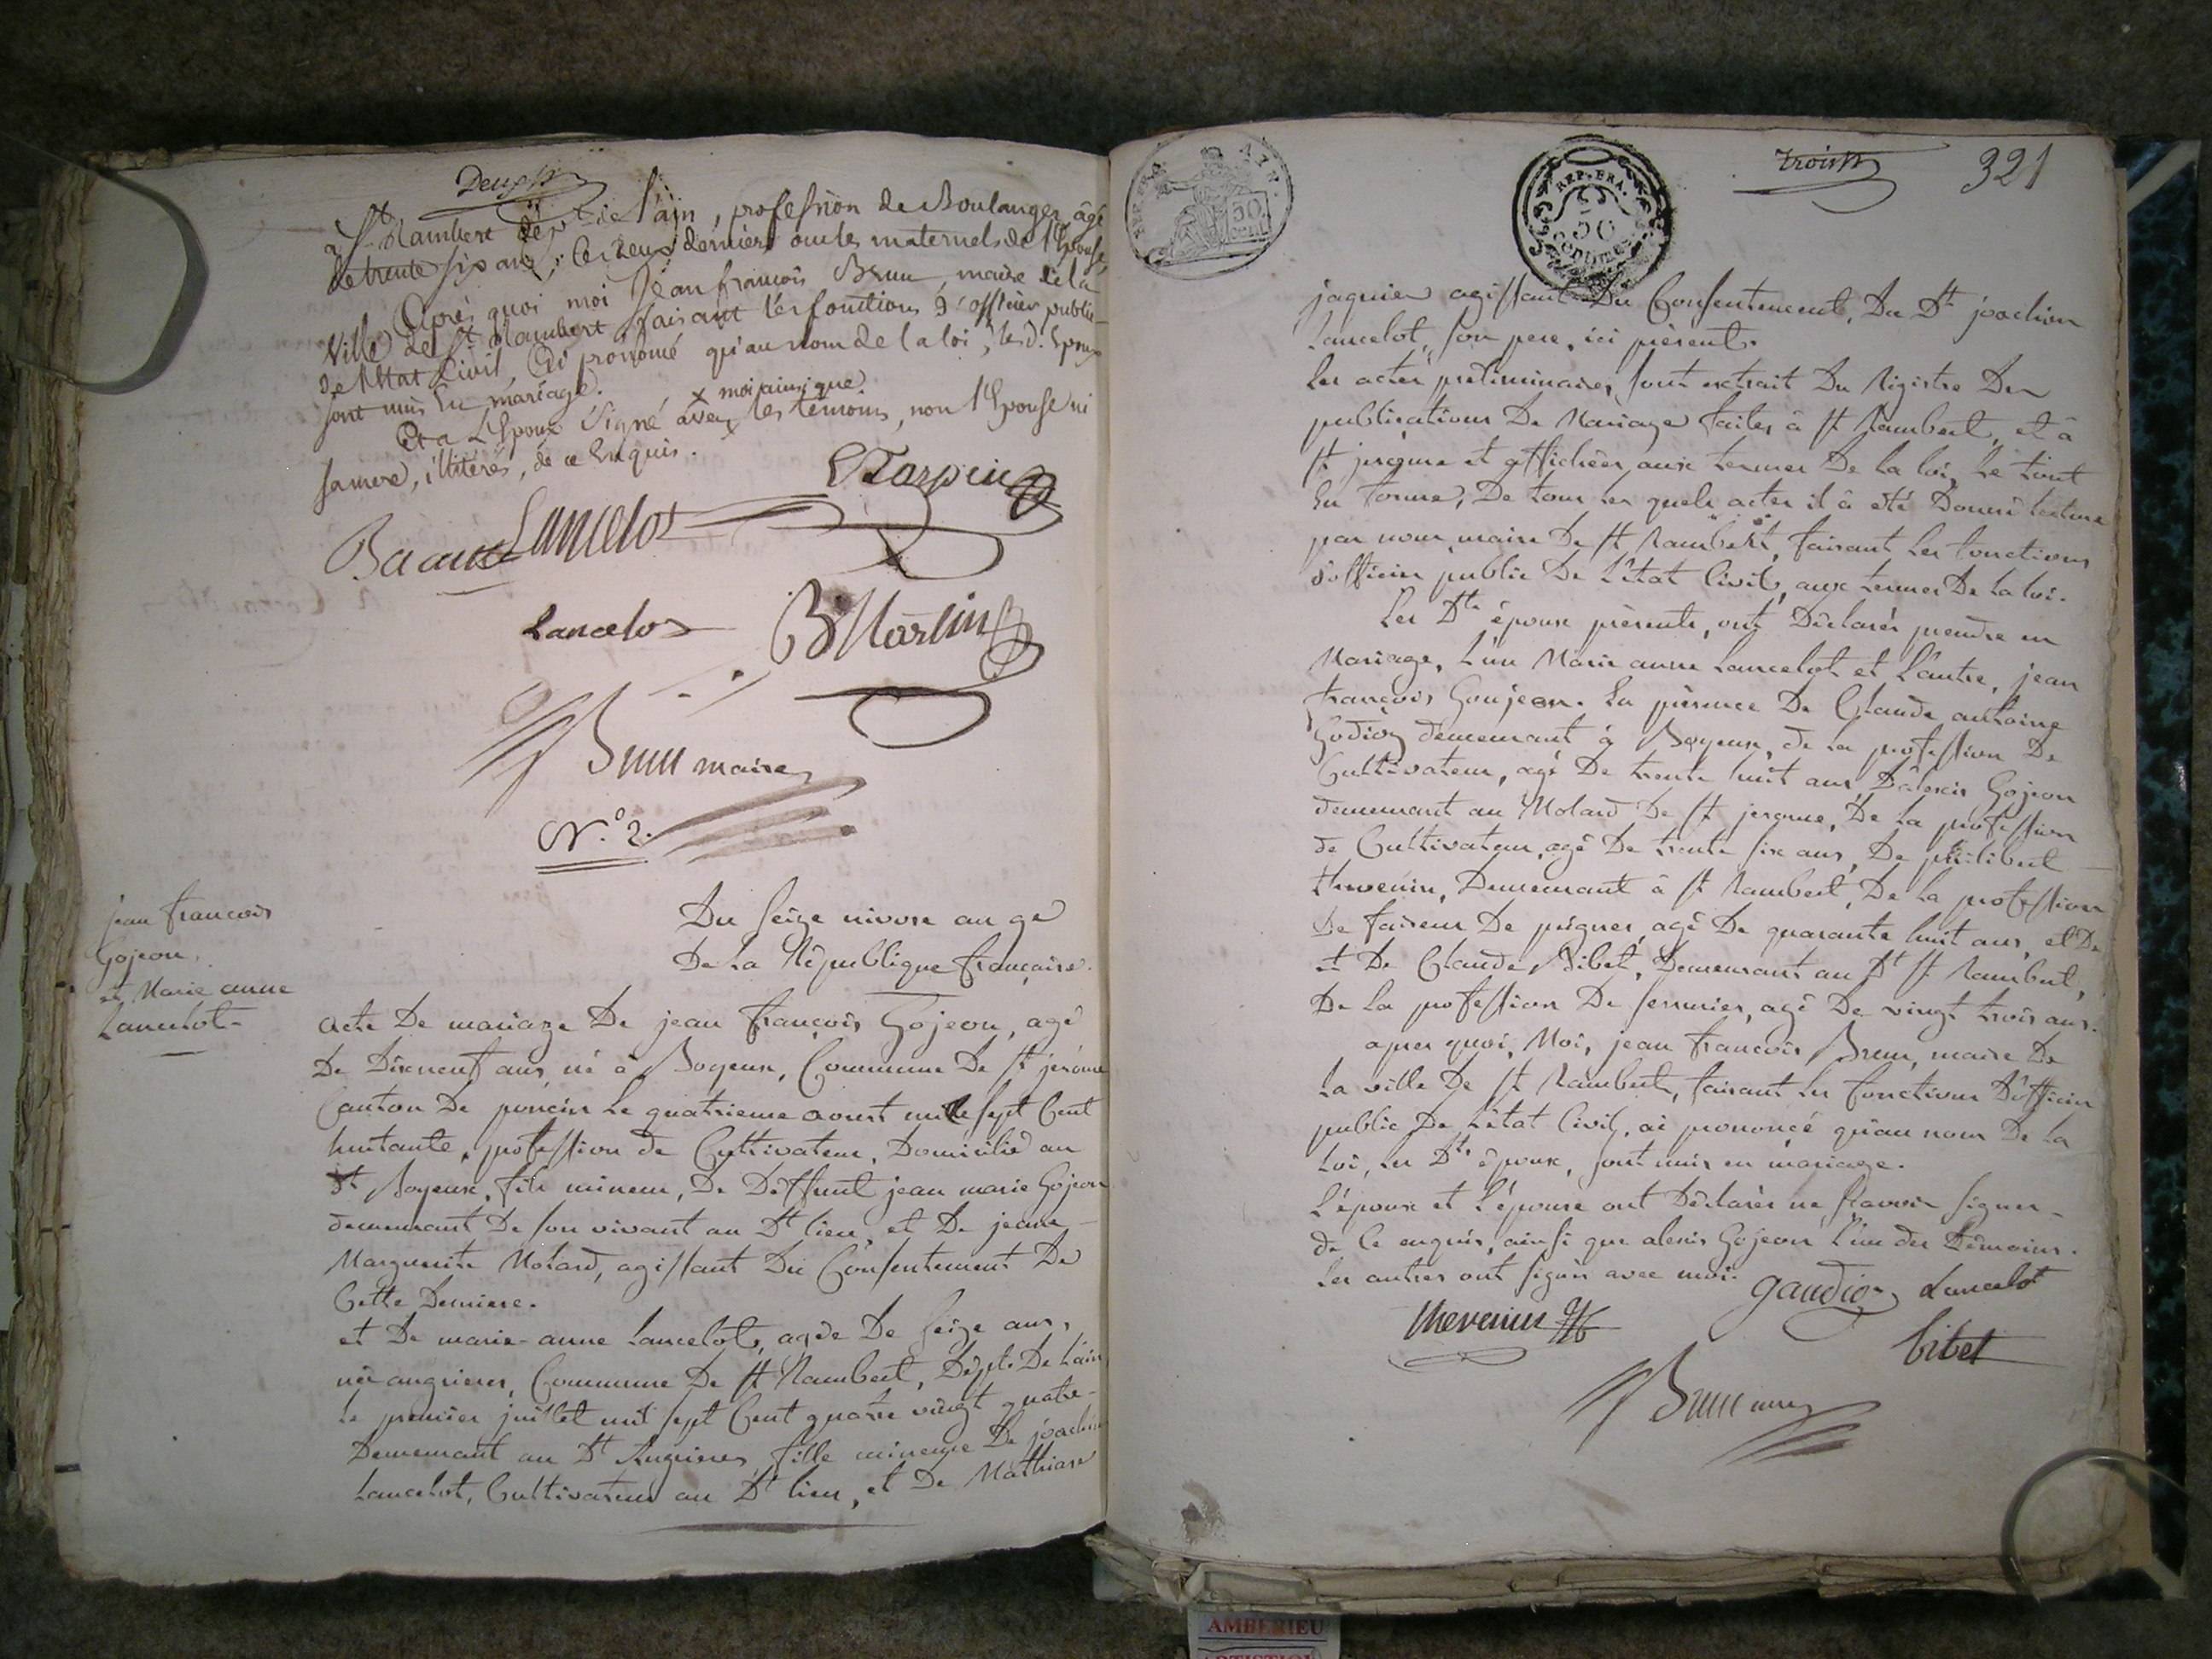 Deux
à St Rambert dépt de l'ain, profession de Boulanger, âgé
de trente six ans, ces deux derniers oncles maternels de l'Epouse,
Après quoi moi Jean françois Brun, maire de la
Ville de St Rambert faisant les fonctions d'officier public
de l'Etat Civil, ai prononcé qu'au nom de la loi, lesd. Epoux
sont unis En mariage.
x moi ainsi que
Et a L'Epoux Signé avec x les témoins, non l'Epouse ni
sa mere, illiterés, de ce Enquis.
CTarpin
Bacaud Lancelot
Lancelot
B Martin
Brun maire
N.° 2.
jean francois
Gojeon,
et Marie anne
Lancelot-
Du seize nivose an 9e
De la République française.
acte De mariage De jean françois Gojeon, agé
De Dixneuf ans, né à Boyeux, Commune De St jerôme
Canton De poncin le quatrieme aoust mille sept Cent
huitante, profession de Cultivateur, Domicilié au
dt Boyeux, fils mineur, De Deffunt jean marie Gojeon
demeurant De son vivant au Dt lieu, et De jeanne
Marguerite Molard, agissant Du Consentement De
Cette Derniere.
et De marie-anne Lancelot, agée De seize ans,
née angrieres, Commune De St Rambert, Dépt. De L'ain
le premier juillet mil sept Cent quatre vingt quatre-
Demeurant au Dt Angrieres, fille mineure De joachim
Lancelot, Cultivateur au Dt lieu, et De Mathiase
REP. FRA.
50
CENT.
REP. FRA.
50
centimes
trois
321
jaquier agissant Du Consentement, Du Dt joachim
Lancelot, son pere, ici présent.
Les actes préliminaires sont extrait Du Registre Des
publications De Mariage faites à St Rambert, et à
St jerome et affichées aux termes De la loi, Le tout
En forme, De tous les quels actes il à été Donné lecture
par nous, maire De St Rambert, faisant les fonctions
d'officier public De L'état Civil, aux termes De la loi.
Les Dts époux présents, ont Déclarés prendre en
Mariage, L'un Marie anne Lancelot et L'autre, jean
françois Goujeon. En présence De Claude antoine
Godioz demeurant à Boyeux, de la profession De
Cultivateur, agé De trente huit ans, D'alexis Gojeon
demeurant au Molard De St jerome, De la profession
de Cultivateur, agé De trente six ans, De philibert
thevenin, Demeurant à St Rambert, De la profession
De faiseur De peignes, agé De quarante huit ans, et De
et De Claude Bibet, Demeurant au Dt St Rambert,
De la profession De serrurier, agé De vingt trois ans.
apres quoi, Moi, jean francois Brun, maire De
La ville De St Rambert, faisant les fonctions D'officier
public De L'état Civil, ai prononcé qu'au nom De la
Loi, les Dts époux, sont unis en mariage.
L'époux et l'épouse ont Déclarés ne scavoir signer-
de Ce enquis, ainsi que alexis Gojeon l'un des témoins.
Les autres ont signés avec moi.
gaudioz Lancelot
thevenin
bibet
Brun maire
AMBERIEU